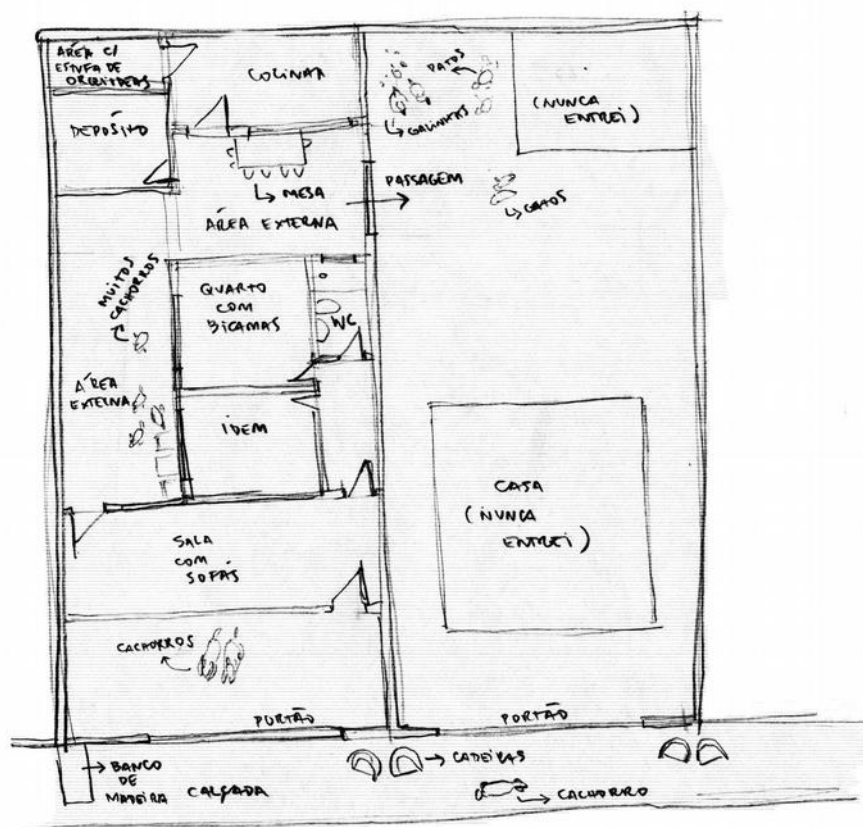 ÁREA C/
ESTUFA DE
ORQUÍDEAS
COZINHA
PATOS
GALINHAS
(NUNCA
ENTREI)
DEPÓSITO
MESA
PASSAGEM
ÁREA EXTERNA
GATOS
MUITOS
CACHORROS
QUARTO
COM
BICAMAS
WC
ÁREA
EXTERNA
IDEM
CASA
(NUNCA
ENTREI)
SALA
COM
SOFÁS
CACHORROS
PORTÃO
PORTÃO
BANCO
DE
MADEIRA
CALÇADA
CADEIRAS
CACHORRO